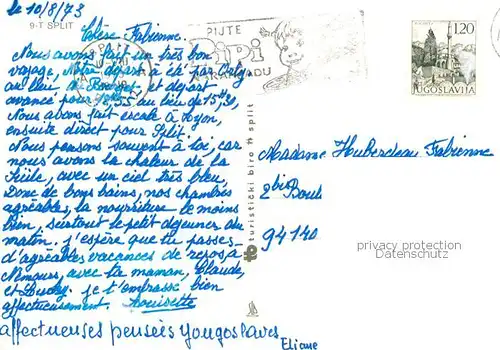 le 10/8/73
9-T SPLIT
Chère Fabienne.
Nous avons fait un très bon
voyage, Notre départ a été par Orly
au lieu de et départ
avancé pour au lieu de 15h30,
Nous avons fait escale à Lyon,
ensuite direct pour Split.
Nous pensons souvent à toi, car
nous avons la chaleur de la
Sicile, avec un ciel très bleu,
Donc de bons bains, nos chambres
agréables, la nourriture le moins
bien, surtout le petit déjeuner du
matin. j'espère que tu passes
d'agréables vacances de repos à
Nemours, avec ta maman, Claude,
et je t'embrasse bien
affectueusement. Louisette
affectueuses pensées Yougoslaves
Eliane
PIJTE
PiPi
turistički biro split
1,20
JUGOSLAVIJA
Madame Fabienne
2 bis
94140
privacy protection
Datenschutz